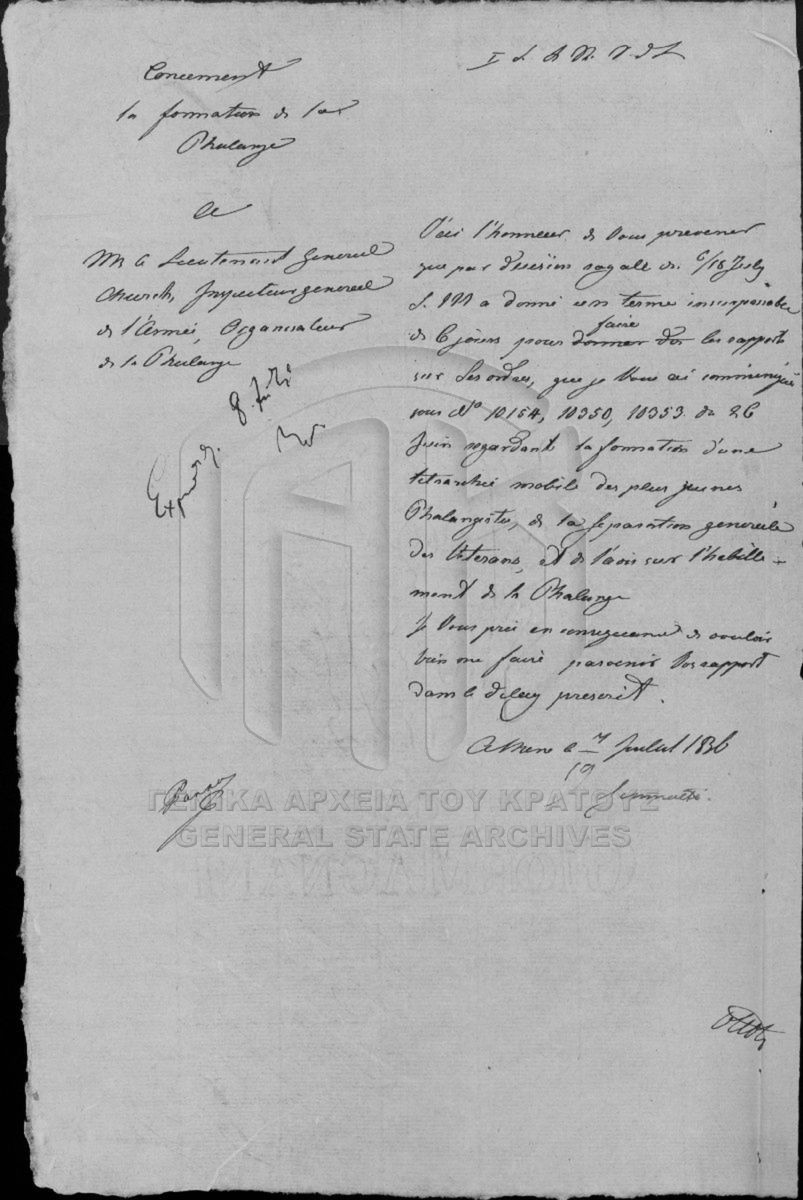 Concernent
la formation de la
Phalange
A
Mr le Lieutenant General
Church, Inspecteur general
de l'Armée, Organisateur
de la Phalange
8
J'ai l'honneur de Vous prevenir
que par décision royale du 6/18 July
S. M a donné un terme
de 6 jours pour donner faire les rapports
sur les ordres, que je Vous ai communiqué
sous No 10154, 10350, 10353 du 26
Juin regardant la formation d'une
tetrarchie mobile des plus jeunes
Phalangistes, de la separation generale
des Veterans, et de l'avis sur l'habille-
ment de la Phalange
Je Vous prie en consequence de vouloir
bien me faire parvenir Vos rapport
dans le delay prescrit.
Athene le 7/19 Juillet 1836
ΓΕΝΙΚΑ ΑΡΧΕΙΑ ΤΟΥ ΚΡΑΤΟΥΣ
GENERAL STATE ARCHIVES